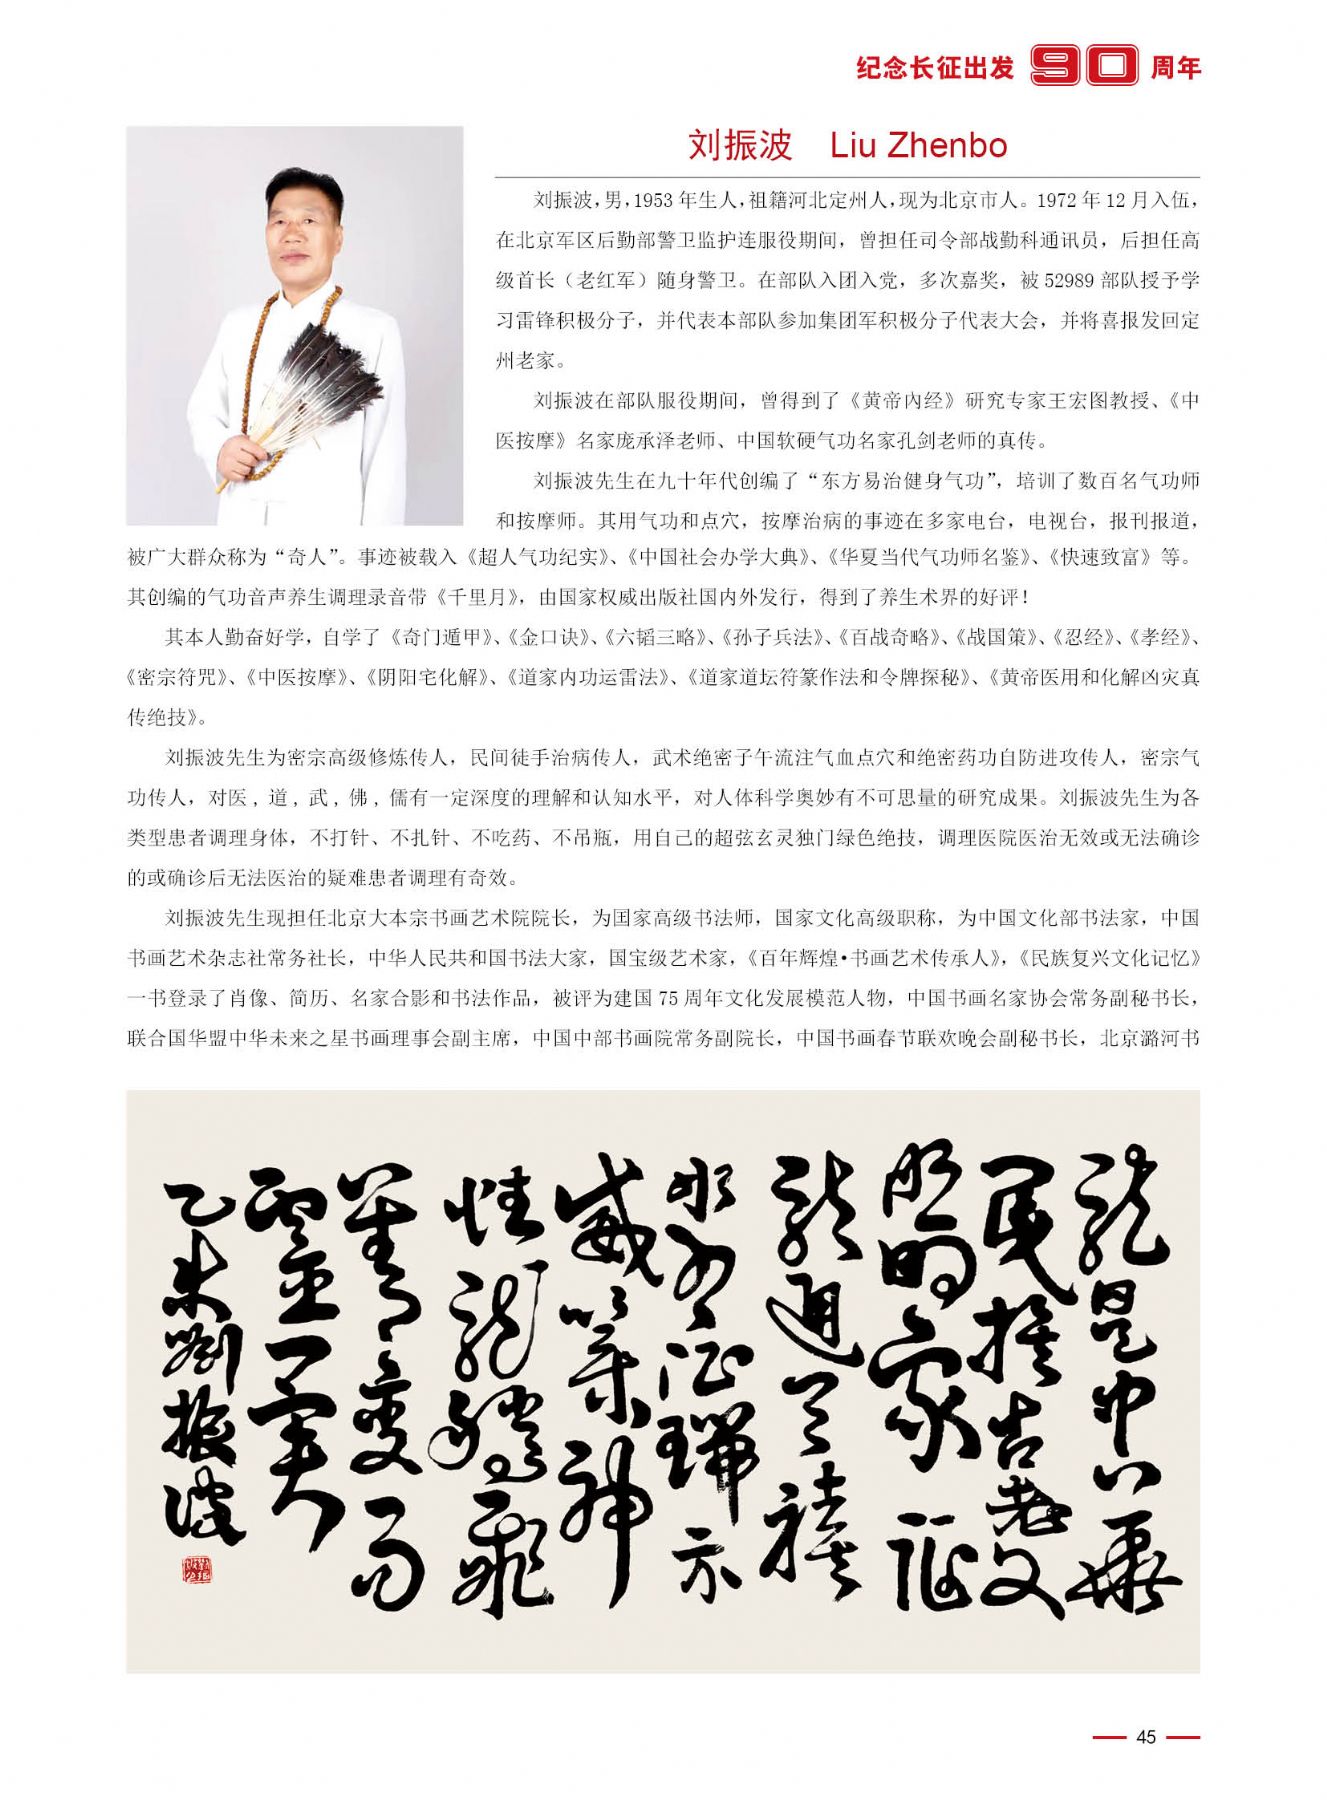 纪念长征出发 90 周年
刘振波 Liu Zhenbo
刘振波，男，1953 年生人，祖籍河北定州人，现为北京市人。1972 年 12 月入伍，
在北京军区后勤部警卫监护连服役期间，曾担任司令部战勤科通讯员，后担任高
级首长（老红军）随身警卫。在部队入团入党，多次嘉奖，被 52989 部队授予学
习雷锋积极分子，并代表本部队参加集团军积极分子代表大会，并将喜报发回定
州老家。
刘振波在部队服役期间，曾得到了《黄帝内经》研究专家王宏图教授、《中
医按摩》名家庞承泽老师、中国软硬气功名家孔剑老师的真传。
刘振波先生在九十年代创编了“东方易治健身气功”，培训了数百名气功师
和按摩师。其用气功和点穴，按摩治病的事迹在多家电台，电视台，报刊报道，
被广大群众称为“奇人”。事迹被载入《超人气功纪实》、《中国社会办学大典》、《华夏当代气功师名鉴》、《快速致富》等。
其创编的气功音声养生调理录音带《千里月》，由国家权威出版社国内外发行，得到了养生术界的好评！
其本人勤奋好学，自学了《奇门遁甲》、《金口诀》、《六韬三略》、《孙子兵法》、《百战奇略》、《战国策》、《忍经》、《孝经》、
《密宗符咒》、《中医按摩》、《阴阳宅化解》、《道家内功运雷法》、《道家道坛符篆作法和令牌探秘》、《黄帝医用和化解凶灾真
传绝技》。
刘振波先生为密宗高级修炼传人，民间徒手治病传人，武术绝密子午流注气血点穴和绝密药功自防进攻传人，密宗气
功传人，对医，道，武，佛，儒有一定深度的理解和认知水平，对人体科学奥妙有不可思量的研究成果。刘振波先生为各
类型患者调理身体，不打针、不扎针、不吃药、不吊瓶，用自己的超弦玄灵独门绿色绝技，调理医院医治无效或无法确诊
的或确诊后无法医治的疑难患者调理有奇效。
刘振波先生现担任北京大本宗书画艺术院院长，为国家高级书法师，国家文化高级职称，为中国文化部书法家，中国
书画艺术杂志社常务社长，中华人民共和国书法大家，国宝级艺术家，《百年辉煌•书画艺术传承人》，《民族复兴文化记忆》
一书登录了肖像、简历、名家合影和书法作品，被评为建国 75 周年文化发展模范人物，中国书画名家协会常务副秘书长，
联合国华盟中华未来之星书画理事会副主席，中国中部书画院常务副院长，中国书画春节联欢晚会副秘书长，北京潞河书
龙是中华
民族古老文
明的家
龙迎
瑞示
威神
性龙腾飞
乙未刘振波
45